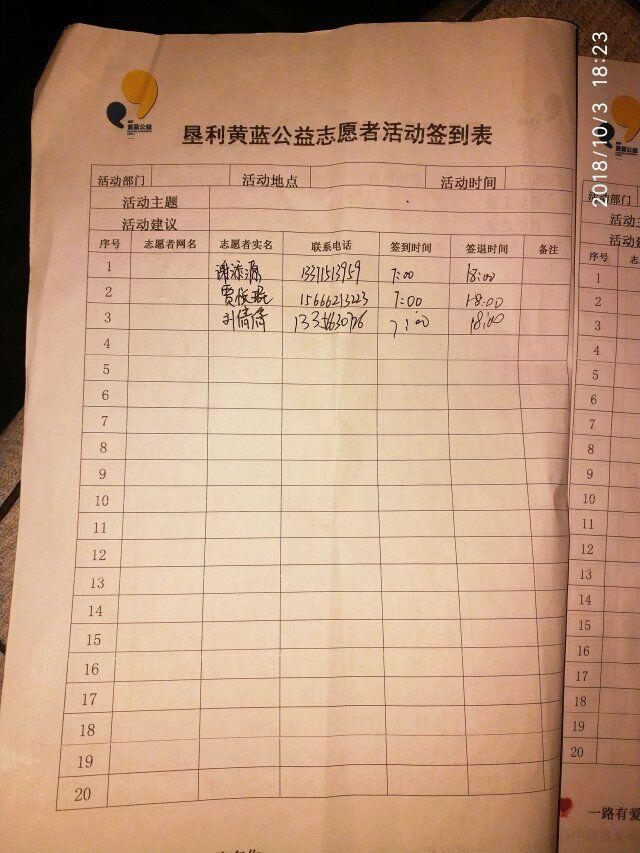 2018/10/3 18:23
黄蓝公益
垦利黄蓝公益志愿者活动签到表
活动部门 活动地点 活动时间
活动主题
活动建议
序号 志愿者网名 志愿者实名 联系电话 签到时间 签退时间 备注
1 谢添源 13371513959 7:00 18:00
2 贾 15666213223 7:00 18:00
3 刘倩倩 7:00 18:00
4
5
6
7
8
9
10
11
12
13
14
15
16
17
18
19
20
黄蓝公益
活动部门
活动主
活动建
序号 志
1
2
3
4
5
6
7
8
9
10
11
12
13
14
15
16
17
18
19
20
一路有爱